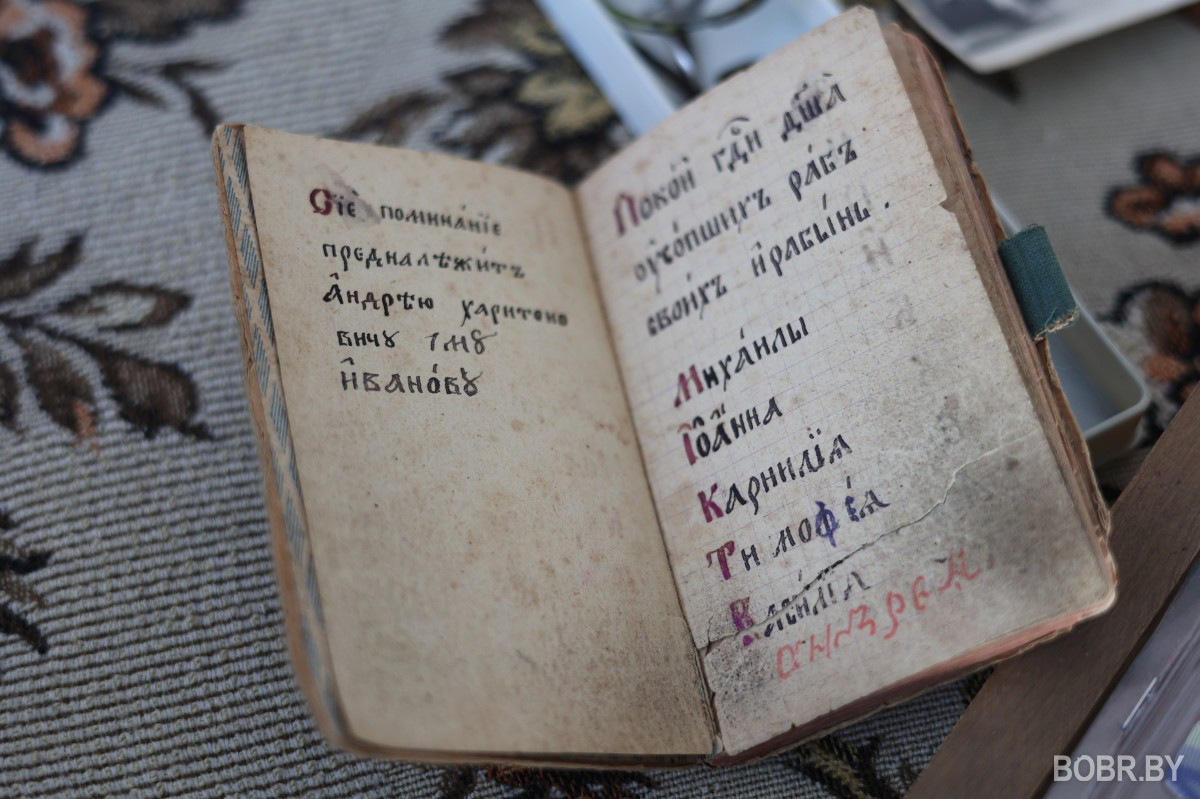 Сїе помина́нїе
предналѣжи́тъ
А҆ндрѣю харитоно
вичꙋ
И҆вано́вꙋ
Поко́й гдⷭ҇и дш҃а̀
оу҆со́пшихъ ра́бъ
свои́хъ и҆рабы́нь.
Миха́илы
І҆ѡа́нна
Карнилїѧ
Тимоѳе́ѧ
Васи́лїѧ
BOBR.BY